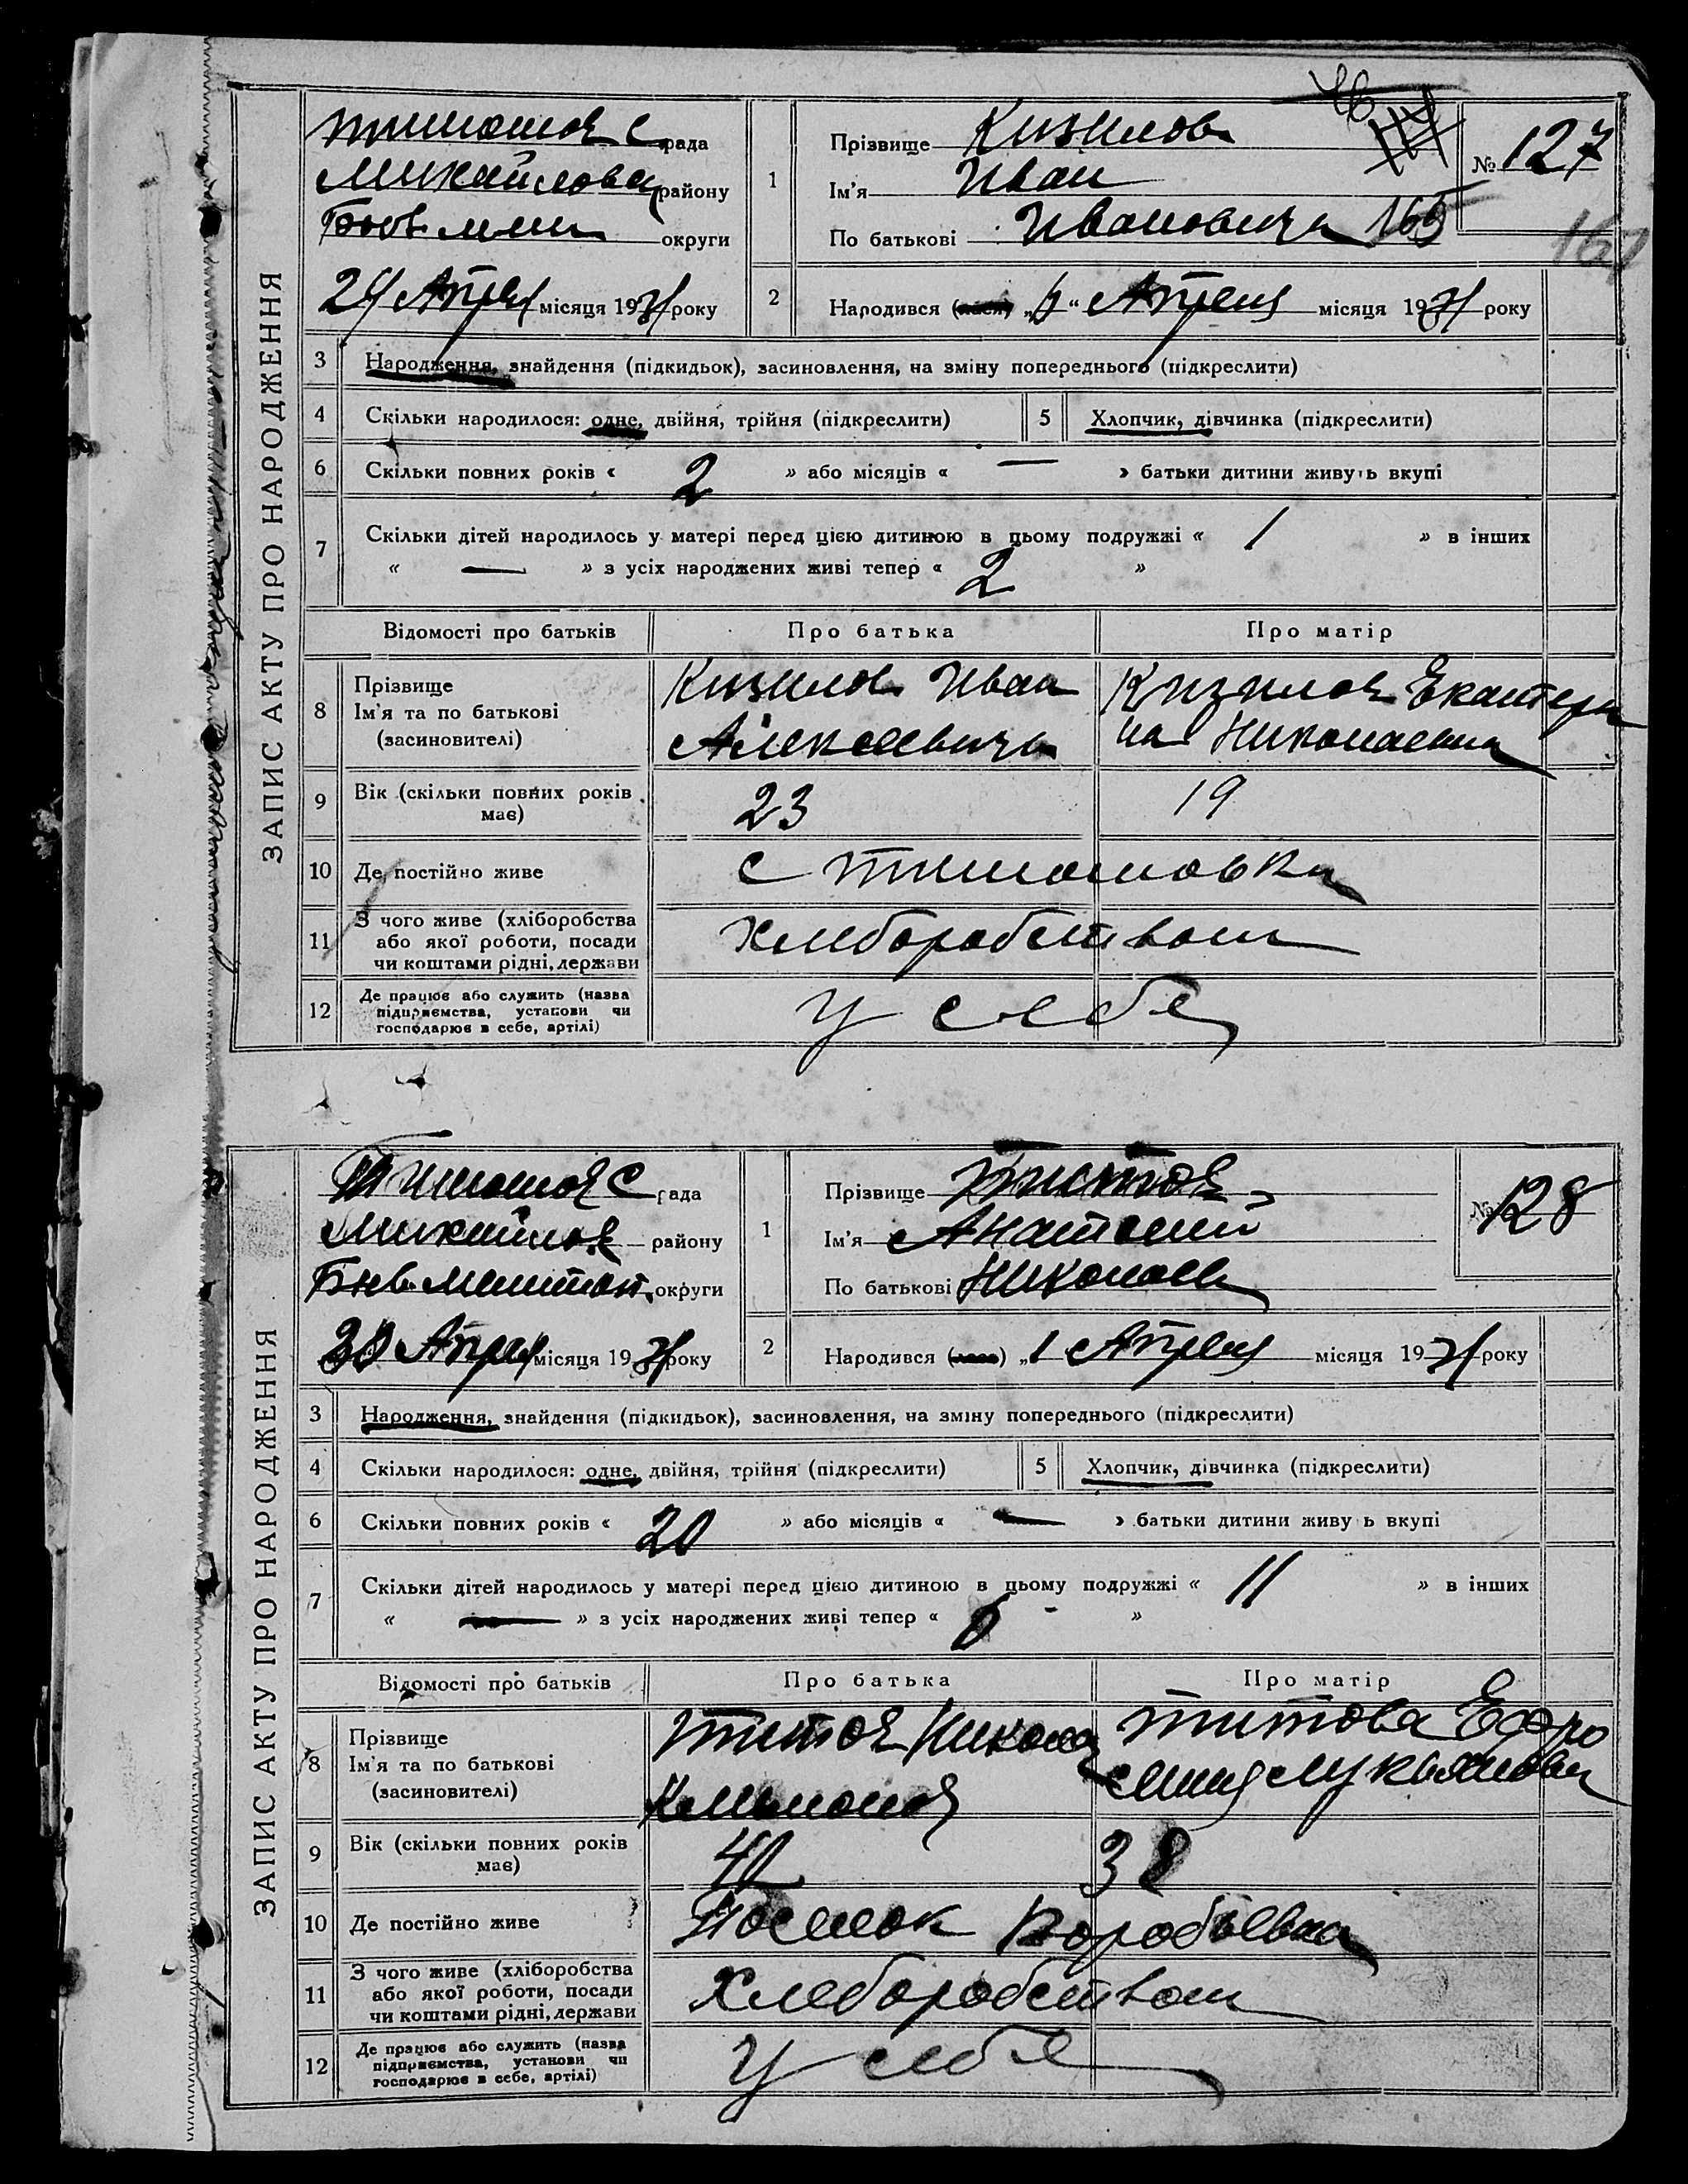 ЗАПИС АКТУ ПРО НАРОДЖЕННЯ
Тимошов С рада
Михайлов району
округи
24 Апреля місяця 1931 року
1
Прізвище Кизилов
Ім'я Иван
По батькові Иванович 165
№ 127
2
Народився „ “ Апреля місяця 1931 року
3 Народження, знайдення (підкидьок), засиновлення, на зміну попереднього (підкреслити)
4 Скільки народилося: одне, двійня, трійня (підкреслити) 5 Хлопчик, дівчинка (підкреслити)
6 Скільки повних років « 2 » або місяців « — » батьки дитини живуть вкупі
7 Скільки дітей народилось у матері перед цією дитиною в цьому подружжі « 1 » в інших
« — » з усіх народжених живі тепер « 2 »
Відомості про батьків Про батька Про матір
8 Прізвище Ім'я та по батькові (засиновителі)
Кизилов Иван
Алексеевич
Кизилов Екатери
на Николаевна
9 Вік (скільки повних років має) 23 19
10 Де постійно живе с Тимошовка
11 З чого живе (хліборобства або якої роботи, посади чи коштами рідні, держави Хлеборобством
12 Де працює або служить (назва підприємства, установи чи господарює в себе, артілі) у себе
ЗАПИС АКТУ ПРО НАРОДЖЕННЯ
Тимошов С рада
Михайлов району
округи
30 Апреля місяця 1931 року
1
Прізвище Титов
Ім'я Анатолий
По батькові Николаев
№ 128
2
Народився „1 Апреля місяця 1931 року
3 Народження, знайдення (підкидьок), засиновлення, на зміну попереднього (підкреслити)
4 Скільки народилося: одне, двійня, трійня (підкреслити) 5 Хлопчик, дівчинка (підкреслити)
6 Скільки повних років « 20 » або місяців « — » батьки дитини живуть вкупі
7 Скільки дітей народилось у матері перед цією дитиною в цьому подружжі « 11 » в інших
« — » з усіх народжених живі тепер « 6 »
Відомості про батьків Про батька Про матір
8 Прізвище Ім'я та по батькові (засиновителі)
Титов Никола
Титова Ефро
синия Лукьянова
9 Вік (скільки повних років має) 40 38
10 Де постійно живе Поселок Воробьевка
11 З чого живе (хліборобства або якої роботи, посади чи коштами рідні, держави Хлеборобством
12 Де працює або служить (назва підприємства, установи чи господарює в себе, артілі) у себе